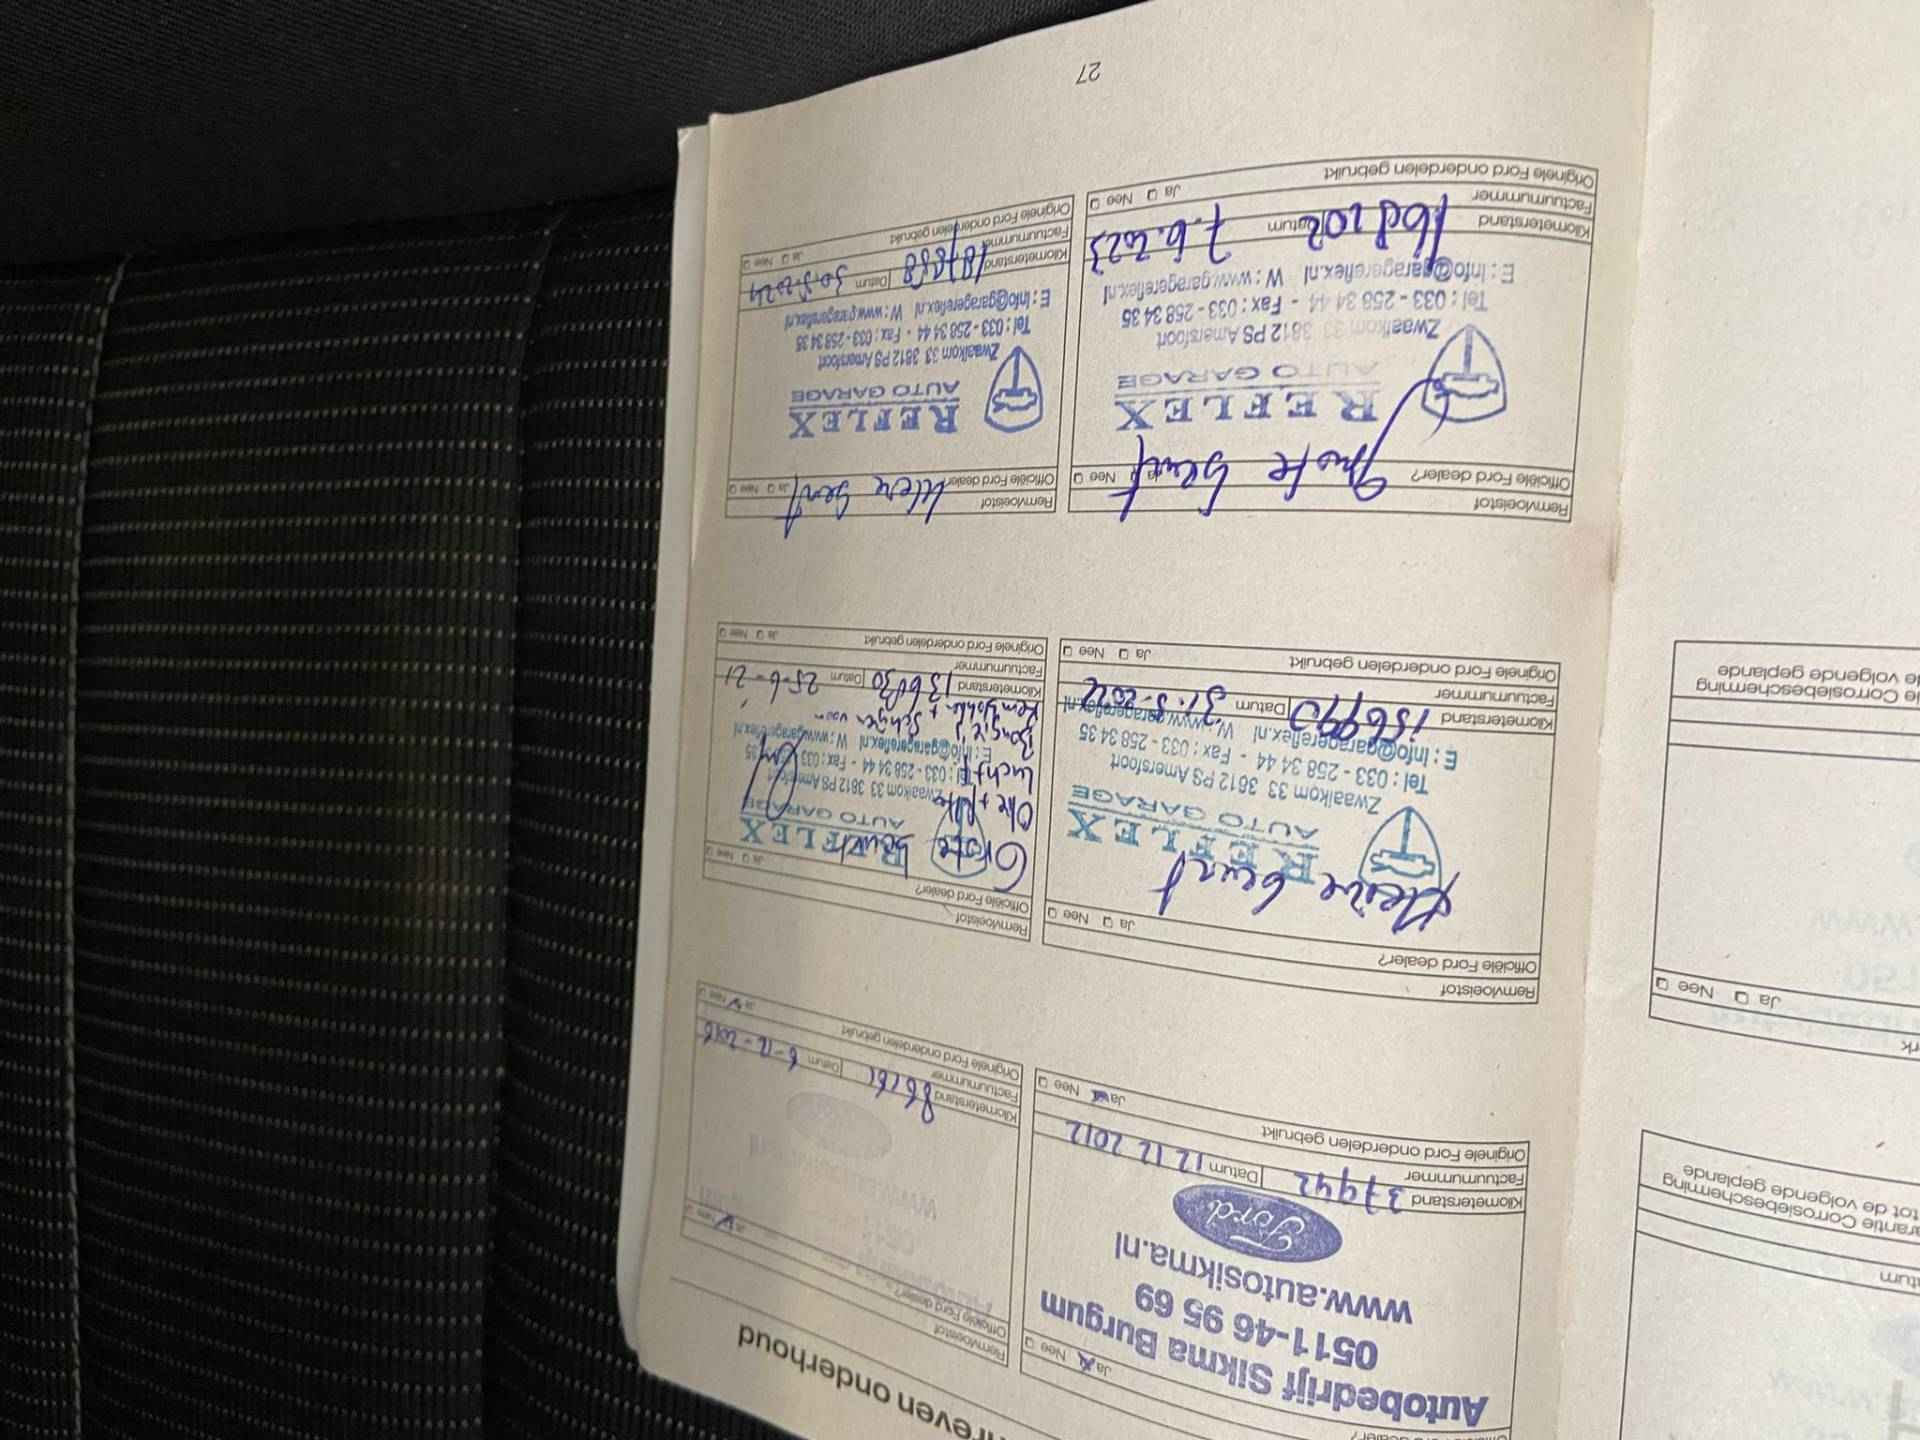 reven onderhoud
Officiële Ford dealer?
Ja Nee
Autobedrijf Sikma Burgum
0511-46 95 69
www.autosikma.nl
Ford
Kilometerstand 37942 Datum 12 12 2012
Factuurnummer
Originele Ford onderdelen gebruikt
Ja Nee
Remvloeistof
Officiële Ford dealer?
Ja Nee
Kilometerstand Datum 6-12-2016
Factuurnummer
Originele Ford onderdelen gebruikt
Ja Nee
Remvloeistof
Officiële Ford dealer?
Ja Nee
Kleine beurt
REFLEX
AUTO GARAGE
Zwaalkom 33 3812 PS Amersfoort
Tel : 033 - 258 34 44 - Fax : 033 - 258 34 35
E : Info@garagereflex.nl W : www.garagereflex.nl
Kilometerstand 156990 Datum 31-5-2022
Factuurnummer
Originele Ford onderdelen gebruikt
Ja Nee
Remvloeistof
Officiële Ford dealer?
Ja Nee
Grote beurt
REFLEX
AUTO GARAGE
Olie + filter
Zwaalkom 33 3812 PS Amersfoort
Lucht
Tel : 033 - 258 34 44 - Fax : 033 35
E : Info@garagereflex.nl W : www.garagereflex.nl
Bougie's
Remblokken + Schijven voor
Kilometerstand 136030 Datum 25-6-21
Factuurnummer
Originele Ford onderdelen gebruikt
Ja Nee
Remvloeistof
Officiële Ford dealer?
Ja Nee
Grote beurt
REFLEX
AUTO GARAGE
Zwaalkom 33 3812 PS Amersfoort
Tel : 033 - 258 34 44 - Fax : 033 - 258 34 35
E : Info@garagereflex.nl W : www.garagereflex.nl
Kilometerstand Datum 7.6.2023
Factuurnummer
Originele Ford onderdelen gebruikt
Ja Nee
Remvloeistof
Officiële Ford dealer
Ja Nee
beurt
REFLEX
AUTO GARAGE
Zwaalkom 33 3812 PS Amersfoort
Tel : 033 - 258 34 44 - Fax : 033 - 258 34 35
E : Info@garagereflex.nl W : www.garagereflex.nl
Kilometerstand 187858 Datum 30-5-2024
Factuurnummer
Originele Ford onderdelen gebruikt
Ja Nee
27
tum
Corrosiebescherming
tot de volgende geplande
Ja Nee
Corrosiebescherming
de volgende geplande